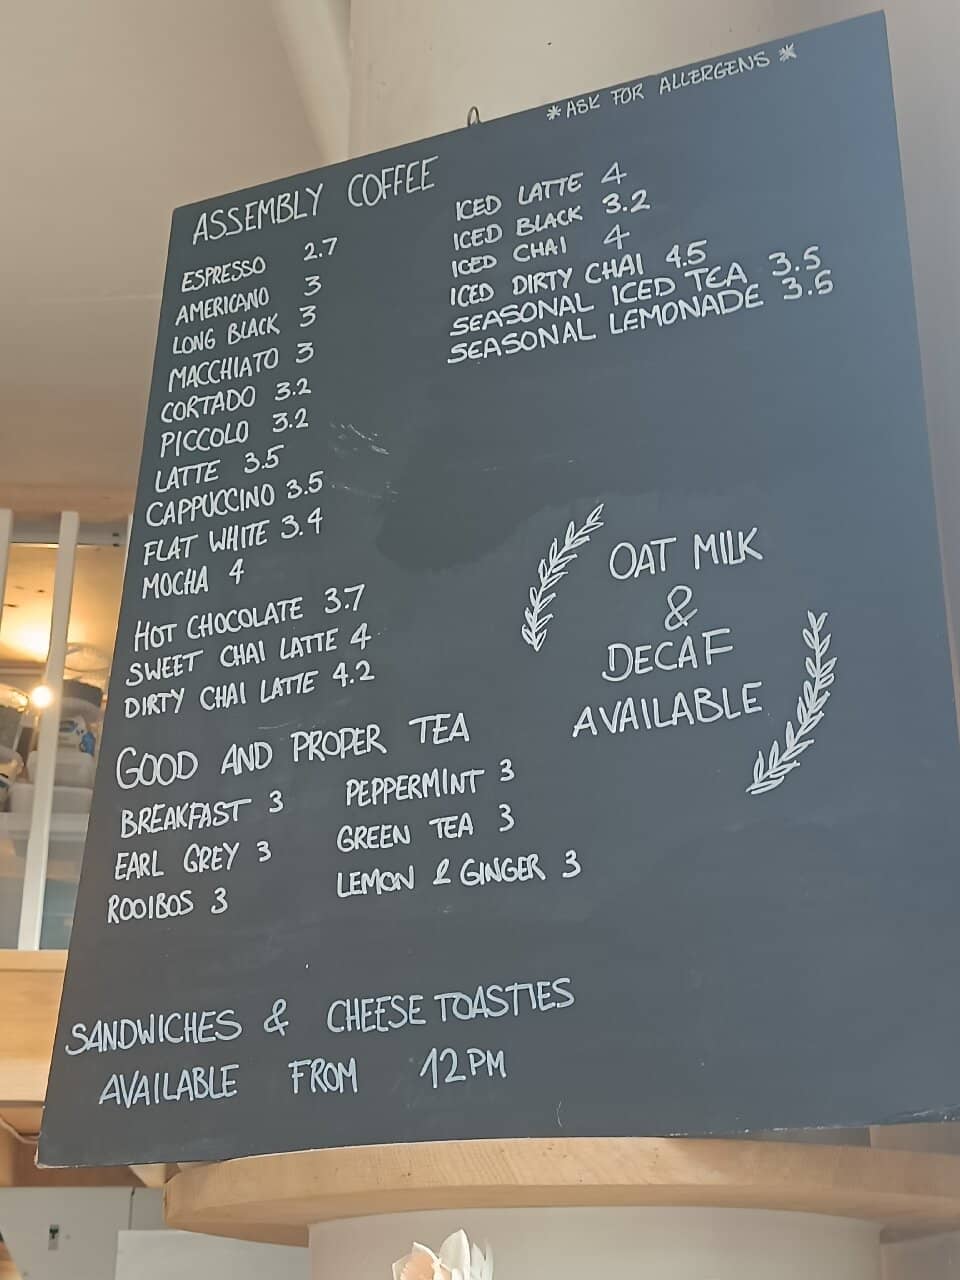 *ASK FOR ALLERGENS*
ASSEMBLY COFFEE
ESPRESSO 2.7
AMERICANO 3
LONG BLACK 3
MACCHIATO 3
CORTADO 3.2
PICCOLO 3.2
LATTE 3.5
CAPPUCCINO 3.5
FLAT WHITE 3.4
MOCHA 4
HOT CHOCOLATE 3.7
SWEET CHAI LATTE 4
DIRTY CHAI LATTE 4.2
ICED LATTE 4
ICED BLACK 3.2
ICED CHAI 4
ICED DIRTY CHAI 4.5
SEASONAL ICED TEA 3.5
SEASONAL LEMONADE 3.5
OAT MILK
&
DECAF
AVAILABLE
GOOD AND PROPER TEA
BREAKFAST 3
EARL GREY 3
ROOIBOS 3
PEPPERMINT 3
GREEN TEA 3
LEMON & GINGER 3
SANDWICHES & CHEESE TOASTIES
AVAILABLE FROM 12PM